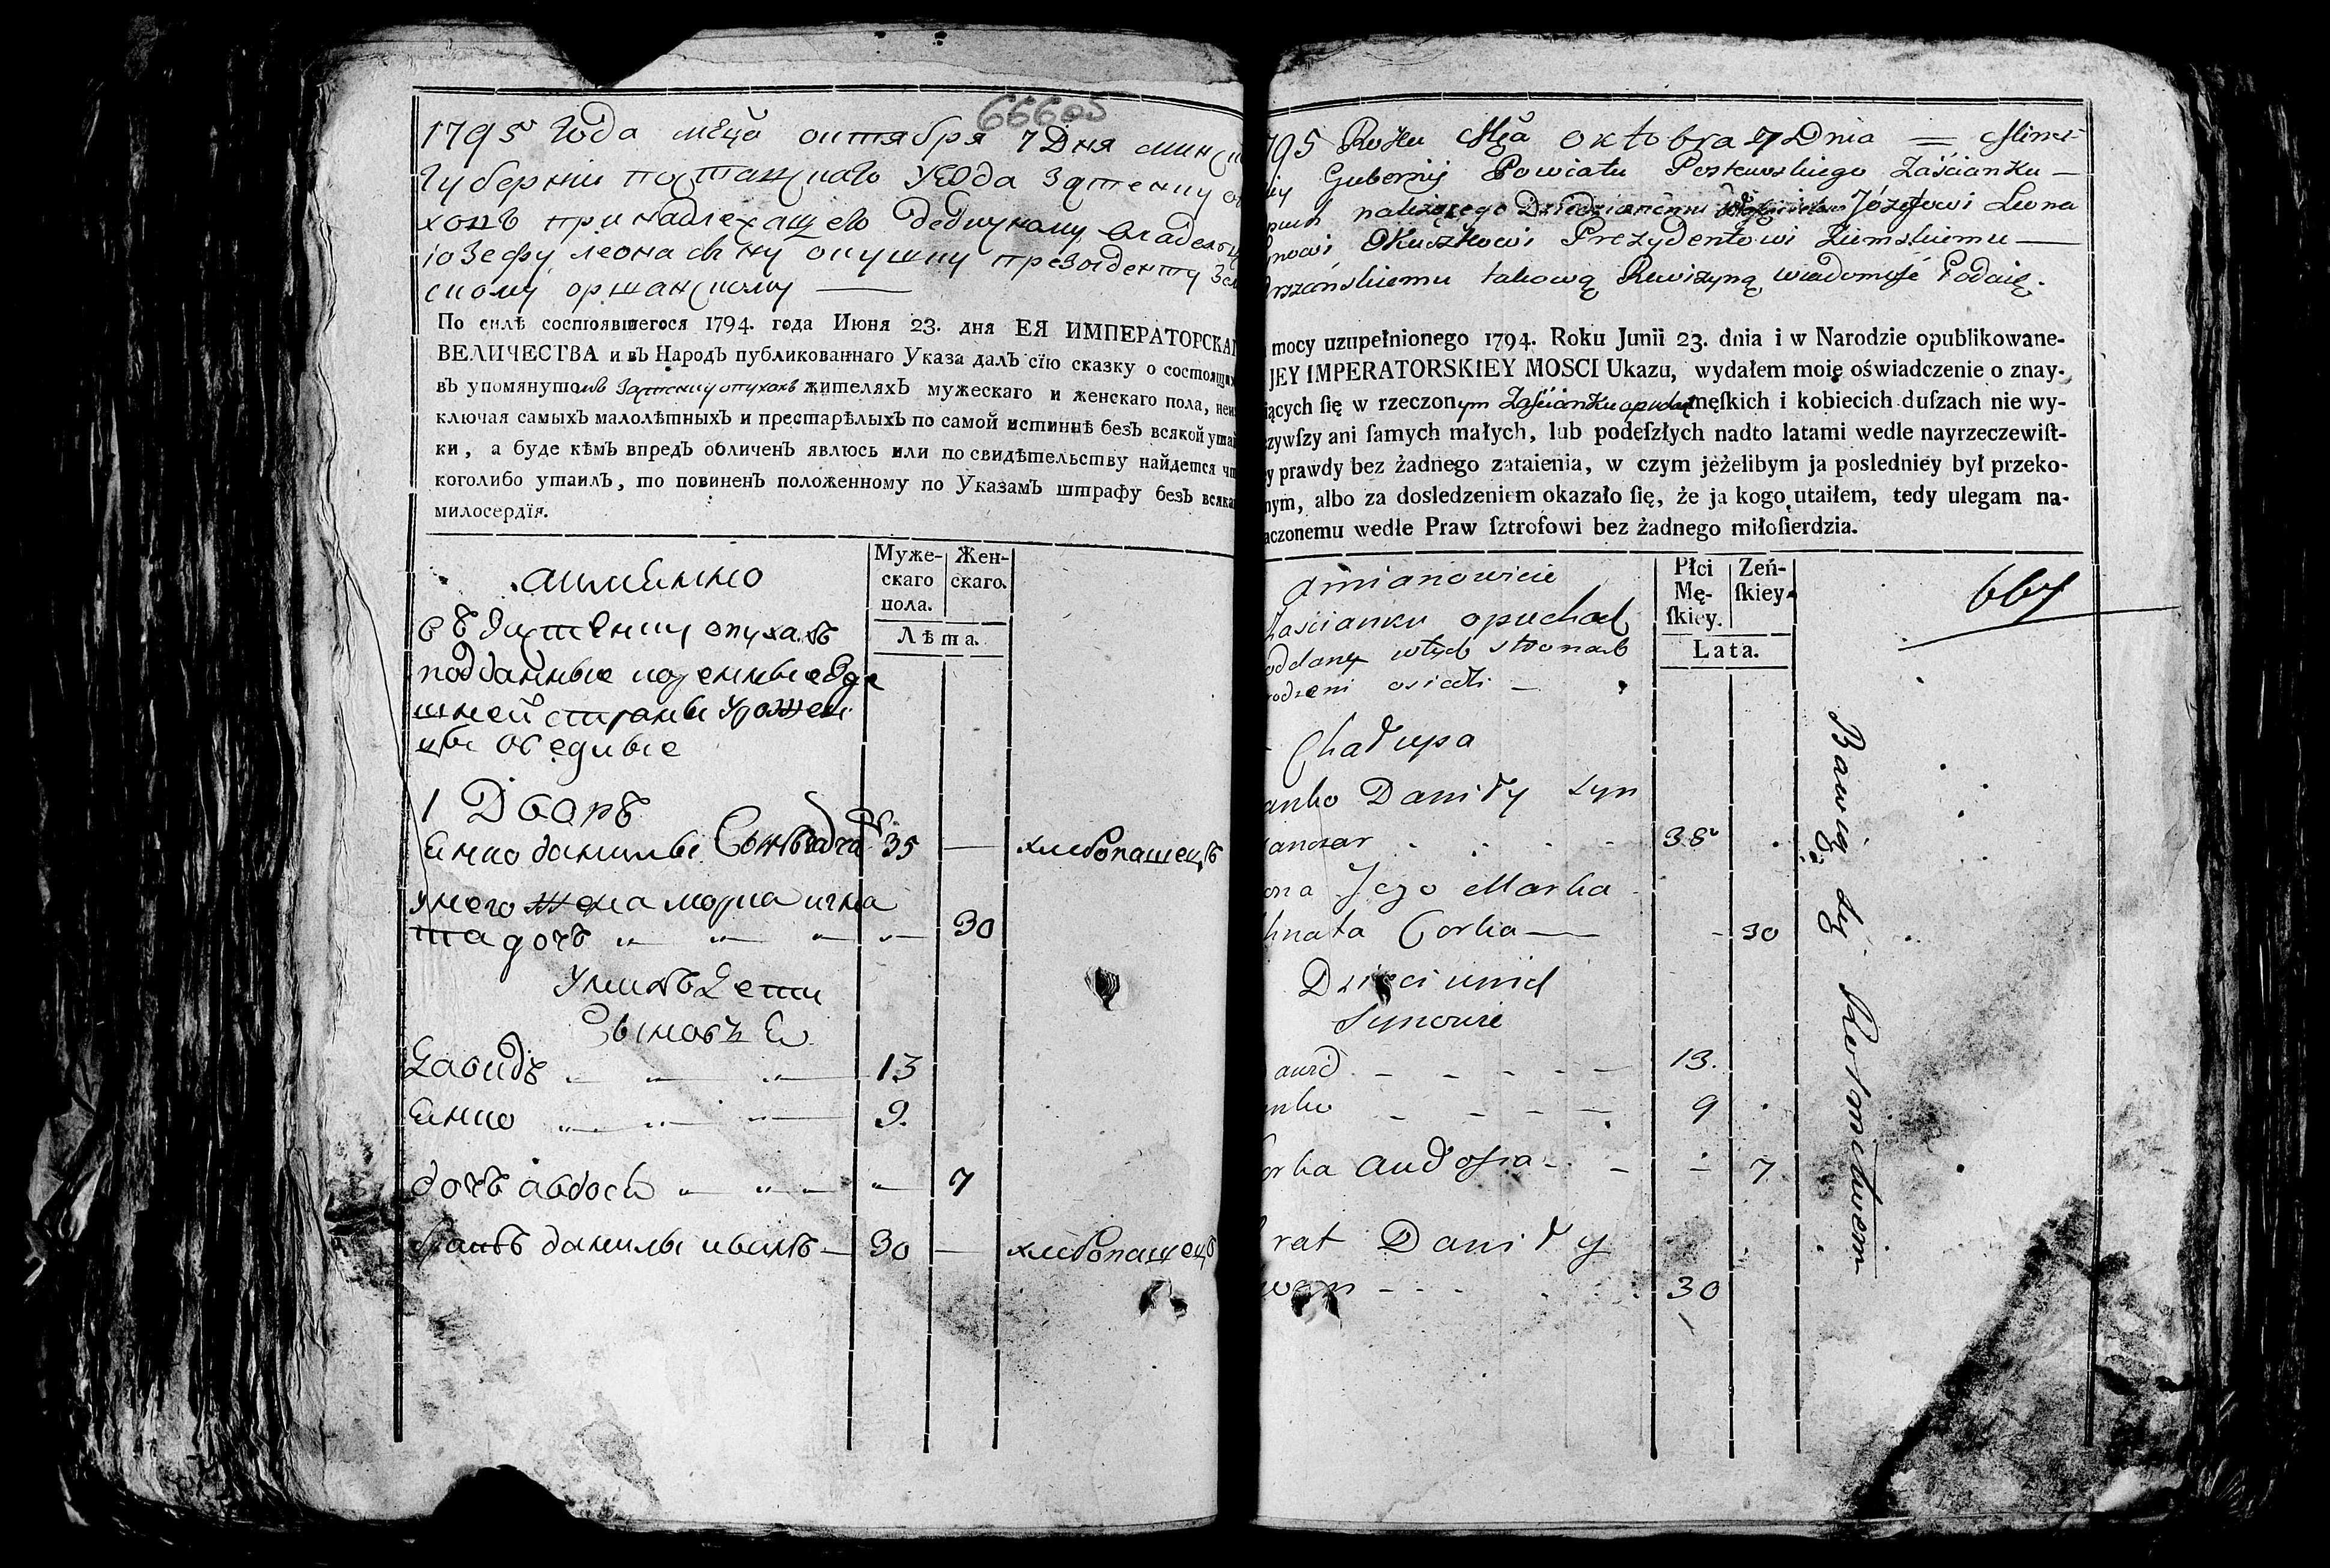 666об
1795 Года мєца октября 7 Дня минс
Губернии поставскаго уезда застенку о
хонъ принадлежащего дедичному владельц
іозефу леона сыну окушку презыденту зем
скому оршанскому
По силѣ состоявшегося 1794. года Июня 23. дня ЕЯ ИМПЕРАТОРСКА
ВЕЛИЧЕСТВА и въ Народъ публикованнаго Указа далъ сїю сказку о состоящих
въ упомянутомъ Застенку опухонъ жителяхъ мужескаго и женскаго пола, неис
ключая самыхъ малолѣтныхъ и престарѣлыхъ по самой истиннѣ безъ всякой утай
ки, а буде кѣмъ впредъ обличенъ явлюсь или по свидѣтельству найдется чт
коголибо утаилъ, то повиненъ положенному по Указамъ штрафу безъ всяка
милосердїя.
аименно
Муже-
скаго
пола.
Жен-
скаго.
Лѣта.
въ застенку опухахъ
подданные коренные зде
шней страны урожен
цы оседлые
1 Дворъ
Янко данилы Сынъ 35 — хлебопашецъ
у него жена марка игна
та дочъ 30
У нихъ дети
Сыновъя
Давидъ 13
Янко 9.
дочъ авдося 7
братъ данилы иванъ — 30 — хлебопашецъ
795 Roku Mca Oktobra 7 Dnia = Mins-
iey Gubernij Powiatu Postawskiego Zaścianku —
puch należącego Dziedzicznemu Józefowi Leona
ynowi Okuszkowi Prezydentowi Ziemskiemu —
rszańskiemu takową Rewizyną wiadomość Podaię.
mocy uzupełnionego 1794. Roku Junii 23. dnia i w Narodzie opublikowane-
JEY IMPERATORSKIEY MOSCI Ukazu, wydałem moię oświadczenie o znay-
iących ſię w rzeczonym Zaścianku opuchach męſkich i kobiecich duſzach nie wy-
zywſzy ani ſamych małych, lub podeſzłych nadto latami wedle nayrzeczewiſt-
y prawdy bez żadnego zataienia, w czym jeżelibym ja posledniey był przeko-
nym, albo za dosledzeniem okazało ſię, że ja kogo utaiłem, tedy ulegam na-
aczonemu wedle Praw ſztrofowi bez żadnego miłoſierdzia.
amianowicie
Płci
Mę-
ſkiey.
Zeń-
ſkiey.
Lata.
667
Zaścianku opuchach
oddany wtych stronach
rodzeni osiedli —
Chałupa
anko Daniły syn
38
ona Jego Marka
hnata Corka — 30
Dzieci unich
Synowie
awid 13.
anko 9
orka audosia 7
rat Daniły
wan 30